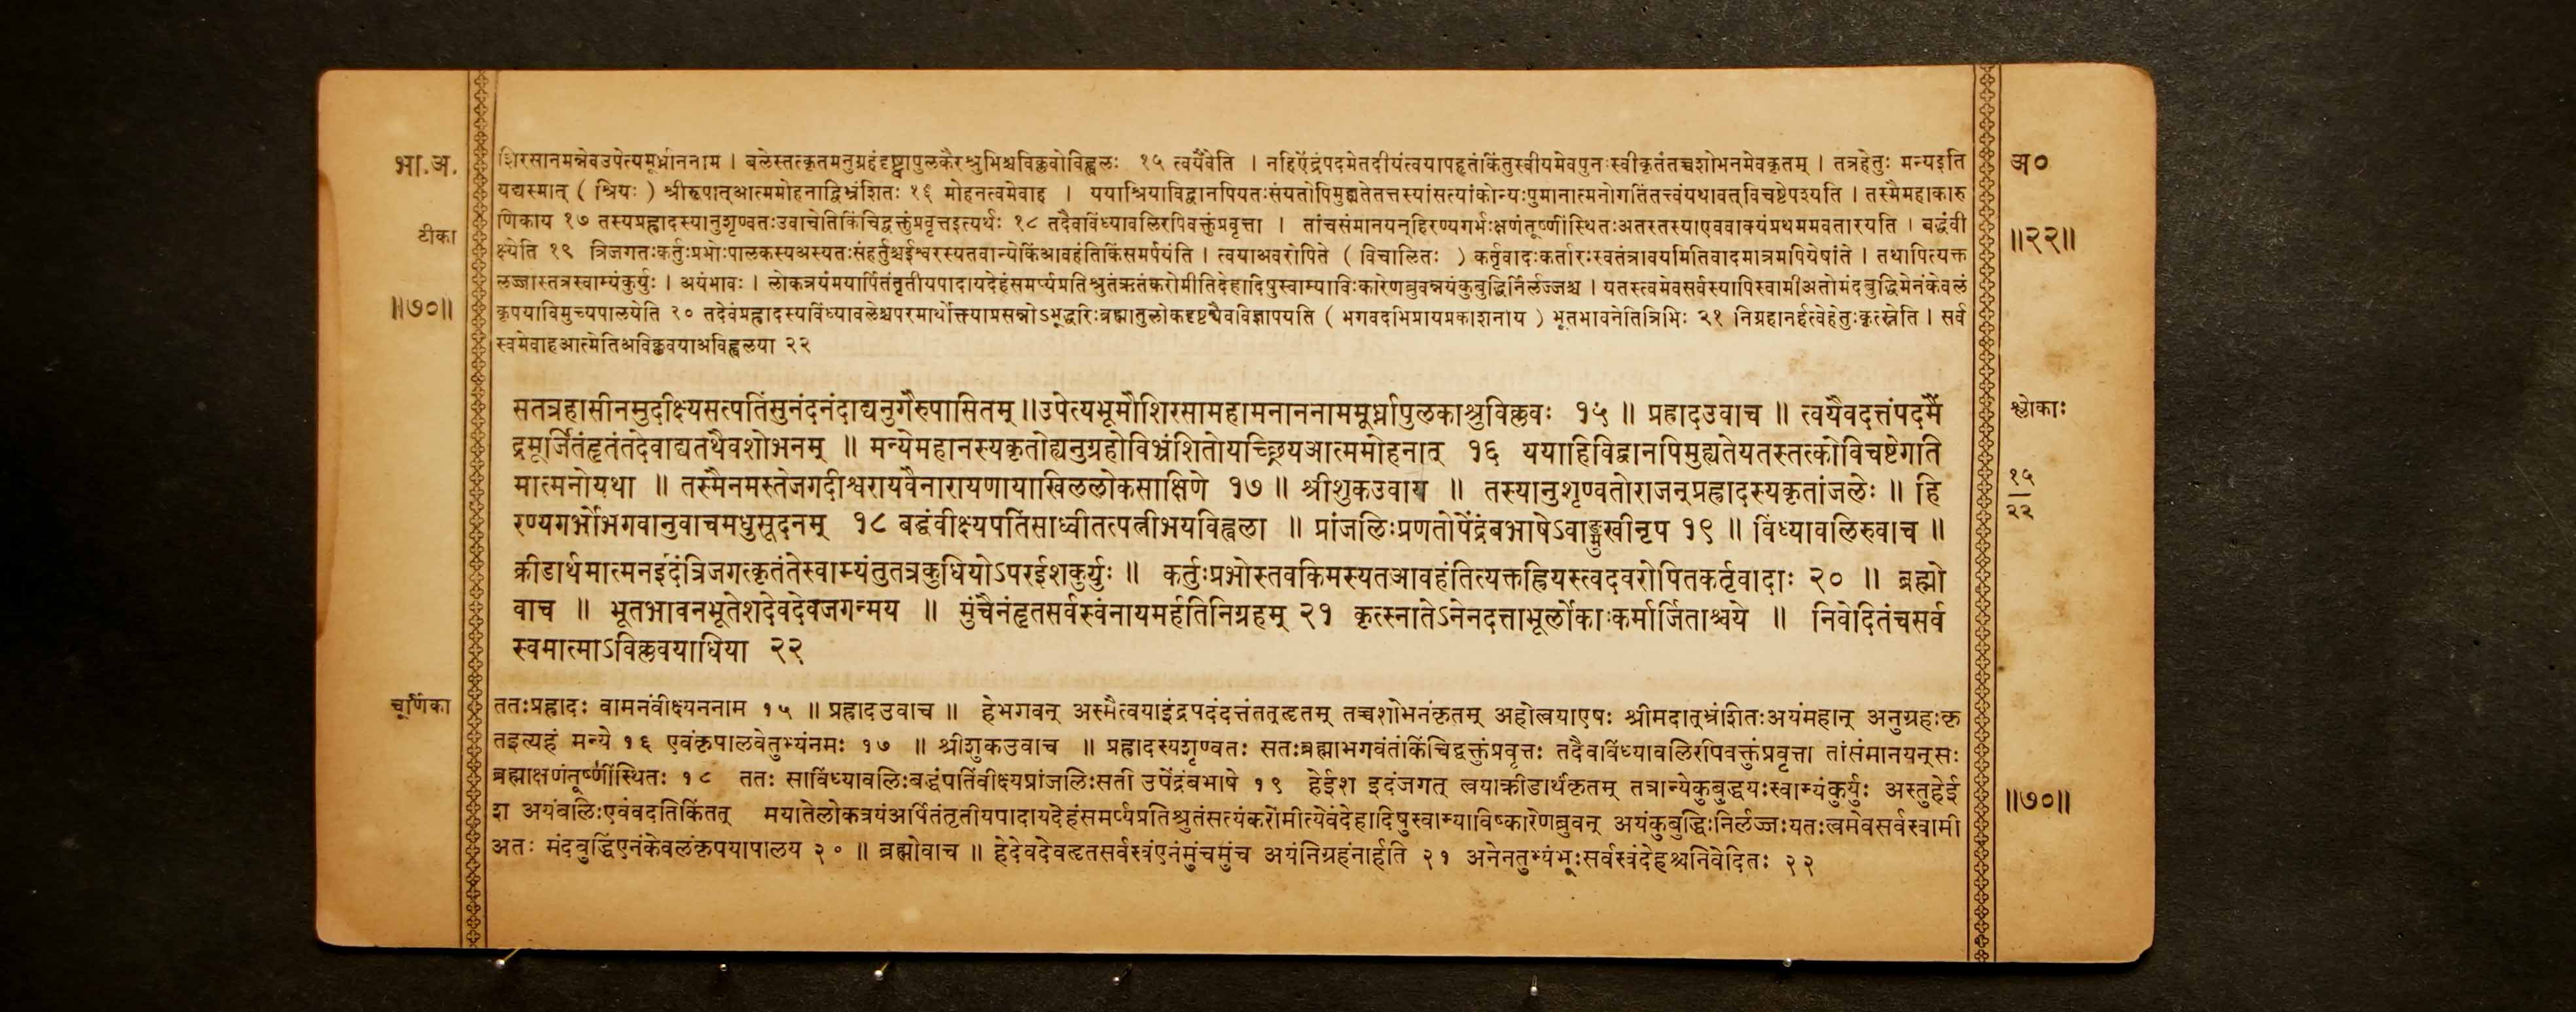 भा.अ.
टीका
॥७०॥
शिरसानमन्नेवउपेत्यमूर्ध्नाननाम । बलेस्तत्कृतमनुग्रहंदृष्ट्वापुलकैरश्रुभिश्चविक्लवोविह्वलः १५ त्वयैवेति । नहिऐंद्रंपदमेतदीयंत्वयापहृतंकिंतुस्वीयमेवपुनःस्वीकृतंतच्चशोभनमेवकृतम् । तत्रहेतुः मन्यइति
यद्यस्मात् ( श्रियः ) श्रीरूपात्आत्ममोहनाद्विभ्रंशितः १६ मोहनत्वमेवाह । ययाश्रियाविद्वानपियतःसंयतोपिमुह्यतेतत्तस्यांसत्यांकोन्यःपुमानात्मनोगतिंतत्त्वंयथावत्विचष्टेपश्यति । तस्मैमहाकारु
णिकाय १७ तस्यप्रह्लादस्यानुशृण्वतःउवाचेतिकिंचिद्वक्तुंप्रवृत्तइत्यर्थः १८ तदैवविंध्यावलिरपिवक्तुंप्रवृत्ता । तांचसंमानयन्हिरण्यगर्भःक्षणंतूष्णींस्थितःअतस्तस्याएववाक्यंप्रथममवतारयति । बद्धंवी
क्ष्येति १९ त्रिजगतःकर्तुःप्रभोःपालकस्यअस्यतःसंहर्तुश्चईश्वरस्यतवान्येकिंआवहंतिकिंसमर्पयंति । त्वयाअवरोपिते ( विचालितः ) कर्तृवादःकर्तारःस्वतंत्रावयमितिवादमात्रमपियेषांते । तथापित्यक्त
लज्जास्तत्रस्वाम्यंकुर्युः । अयंभावः । लोकत्रयंमयार्पितंतृतीयपादायदेहंसमर्प्यप्रतिश्रुतंऋतंकरोमीतिदेहादिषुस्वाम्याविःकारेणब्रुवन्नयंकुबुद्धिर्निर्लज्जश्च । यतस्त्वमेवसर्वस्यापिस्वामीअतोमंदबुद्धिमेनंकेवलं
कृपयाविमुच्यपालयेति २० तदेवंप्रह्लादस्यविंध्यावलेश्चपरमार्थोक्त्याप्रसन्नोऽभूद्धरिःब्रह्मातुलोकदृष्ट्यैवविज्ञापयति ( भगवदभिप्रायप्रकाशनाय ) भूतभावनेतित्रिभिः २१ निग्रहानर्हत्वेहेतुःकृत्स्नेति । सर्व
स्वमेवाहआत्मेतिअविक्लवयाअविह्वलया २२
अ०
॥२२॥
सतत्रहासीनमुदीक्ष्यसत्पतिंसुनंदनंदाद्यनुगैरुपासितम् ॥उपेत्यभूमौशिरसामहामनाननाममूर्ध्नापुलकाश्रुविक्लवः १५ ॥ प्रह्रादउवाच ॥ त्वयैवदत्तंपदमैं
द्रमूर्जितंहृतंतदेवाद्यतथैवशोभनम् ॥ मन्येमहानस्यकृतोह्यनुग्रहोविभ्रंशितोयच्छ्रियआत्ममोहनात् १६ ययाहिविद्वानपिमुह्यतेयतस्तत्कोविचष्टेगति
मात्मनोयथा ॥ तस्मैनमस्तेजगदीश्वरायवैनारायणायाखिललोकसाक्षिणे १७ ॥ श्रीशुकउवाच ॥ तस्यानुशृण्वतोराजन्प्रह्लादस्यकृतांजलेः ॥ हि
रण्यगर्भोभगवानुवाचमधुसूदनम् १८ बद्धंवीक्ष्यपतिंसाध्वीतत्पत्नीभयविह्वला ॥ प्रांजलिःप्रणतोपेंद्रंबभाषेऽवाङ्मुखीनृप १९ ॥ विंध्यावलिरुवाच ॥
क्रीडार्थमात्मनइदंत्रिजगत्कृतंतेस्वाम्यंतुतत्रकुधियोऽपरईशकुर्युः ॥ कर्तुःप्रभोस्तवकिमस्यतआवहंतित्यक्तह्रियस्त्वदवरोपितकर्तृवादाः २० ॥ ब्रह्मो
वाच ॥ भूतभावनभूतेशदेवदेवजगन्मय ॥ मुंचैनंहृतसर्वस्वंनायमर्हतिनिग्रहम् २१ कृत्स्नातेऽनेनदत्ताभूर्लोकाःकर्मार्जिताश्चये ॥ निवेदितंचसर्व
स्वमात्माऽविक्लवयाधिया २२
श्लोकाः
१५
२२
चूर्णिका
ततःप्रह्रादः वामनंवीक्ष्यननाम १५ ॥ प्रह्रादउवाच ॥ हेभगवन् अस्मैत्वयाइंद्रपदंदत्तंतत्हृतम् तच्चशोभनंकृतम् अहोत्वयाएषः श्रीमदात्भ्रंशितःअयंमहान् अनुग्रहःकृ
तइत्यहं मन्ये १६ एवंकृपालवेतुभ्यंनमः १७ ॥ श्रीशुकउवाच ॥ प्रह्रादस्यशृण्वतः सतःब्रह्माभगवंतंकिंचिद्वक्तुंप्रवृत्तः तदैवविंध्यावलिरपिवक्तुंप्रवृत्ता तांसंमानयन्सः
ब्रह्माक्षणंतूष्णींस्थितः १८ ततः साविंध्यावलिःबद्धंपतिंवीक्ष्यप्रांजलिःसती उपेंद्रंबभाषे १९ हेईश इदंजगत् त्वयाक्रीडार्थंकृतम् तत्रान्येकुबुद्धयःस्वाम्यंकुर्युः अस्तुहेई
श अयंबलिःएवंवदतिकिंतत् मयातेलोकत्रयंअर्पितंतृतीयपादायदेहंसमर्प्यप्रतिश्रुतंसत्यंकरोमीत्येवंदेहादिषुस्वाम्याविष्कारेणब्रुवन् अयंकुबुद्धिःनिर्लज्जःयतःत्वमेवसर्वस्वामी
अतः मंदबुद्धिंएनंकेवलंकृपयापालय २० ॥ ब्रह्मोवाच ॥ हेदेवदेवहृतसर्वस्वंएनंमुंचमुंच अयंनिग्रहंनार्हति २१ अनेनतुभ्यंभूःसर्वस्वंदेहश्चनिवेदितः २२
॥७०॥